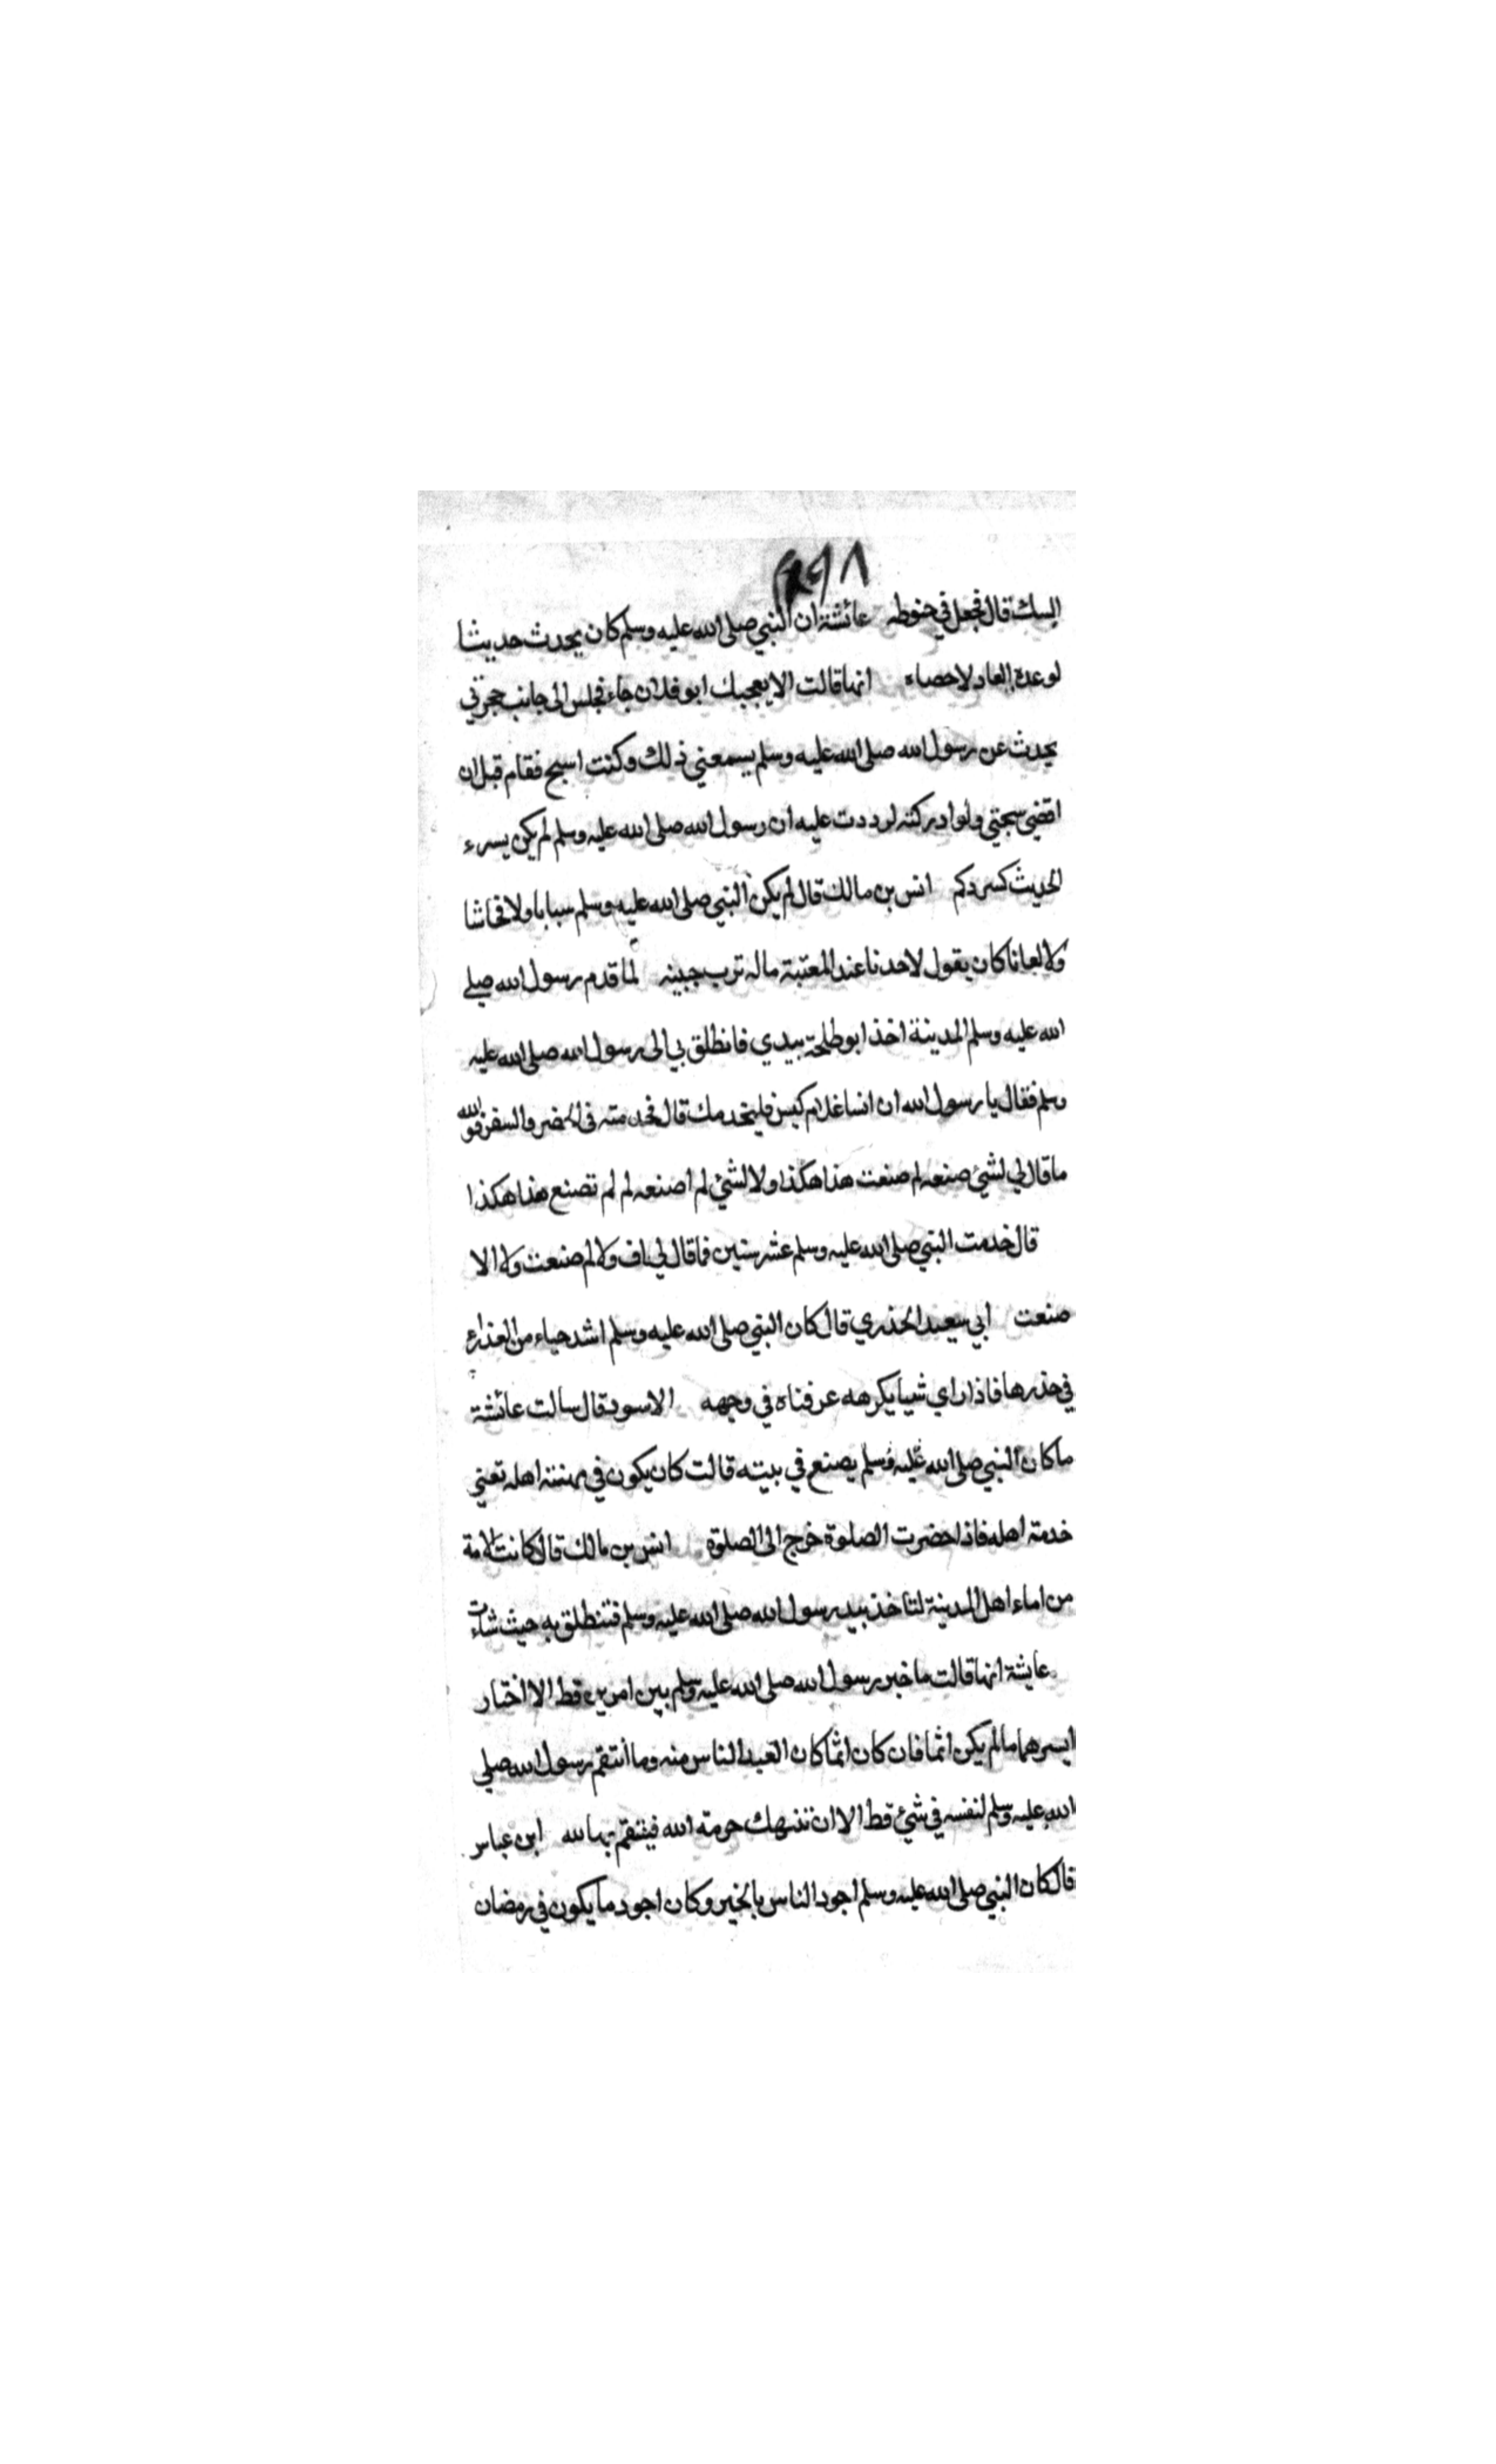 السك قال فجعل في حنوطه عائشة ان النبي صلى الله عليه وسلم كان يحدث حديثا
لو عده العاد لاحصاه انها قالت الا يعجبك ابو فلان جاء فجلس الى جانب حجرتي
يحدث عن رسول الله صلى الله عليه وسلم يسمعني ذلك وكنت اسبح فقام قبل ان
اقضي سبحتي ولو ادركته لرددت عليه ان رسول الله صلى الله عليه وسلم لم يكن يسرد
الحديث كسردكم انس بن مالك قال لم يكن النبي صلى الله عليه وسلم سبابا ولا فحاشا
ولا لعانا كان يقول لاحدنا عند المعتبة ماله ترب جبينه لما قدم رسول الله صلى
الله عليه وسلم المدينة اخذ ابو طلحة بيدي فانطلق بي الى رسول الله صلى الله عليه
وسلم فقال يا رسول الله ان انسا غلام كيس فليخدمك قال فخدمته في الحضر والسفر فوالله
ما قال لي لشئ صنعه لم صنعت هذا هكذا ولا لشئ لم اصنعه لم لم تصنع هذا هكذا
قال خدمت النبي صلى الله عليه وسلم عشر سنين فما قال لي اف ولا لم صنعت ولا الا
صنعت ابي سعيد الخذري قال كان النبي صلى الله عليه وسلم اشد حياء من العذراء
في خذرها فاذا راي شيا يكرهه عرفناه في وجهه الاسود قال سالت عائشة
ما كان النبي صلى الله عليه وسلم يصنع في بيته قالت كان يكون في مهنة اهله تعني
خدمة اهله فاذا حضرت الصلوة خرج الى الصلوة انس بن مالك قال كانت الامة
من اماء اهل المدينة لتاخذ بيد رسول الله صلى الله عليه وسلم فتنطلق به حيث شاءت
عايشة انها قالت ما خير رسول الله صلى الله عليه وسلم بين امرين قط الا اختار
ايسرهما ما لم يكن اثما فان كان اثما كان ابعد الناس منه وما انتقم رسول الله صلى
الله عليه وسلم لنفسه في شئ قط الا ان تنتهك حرمة الله فينتقم بها لله ابن عباس
قال كان النبي صلى الله عليه وسلم اجود الناس بالخير وكان اجود ما يكون في رمضان